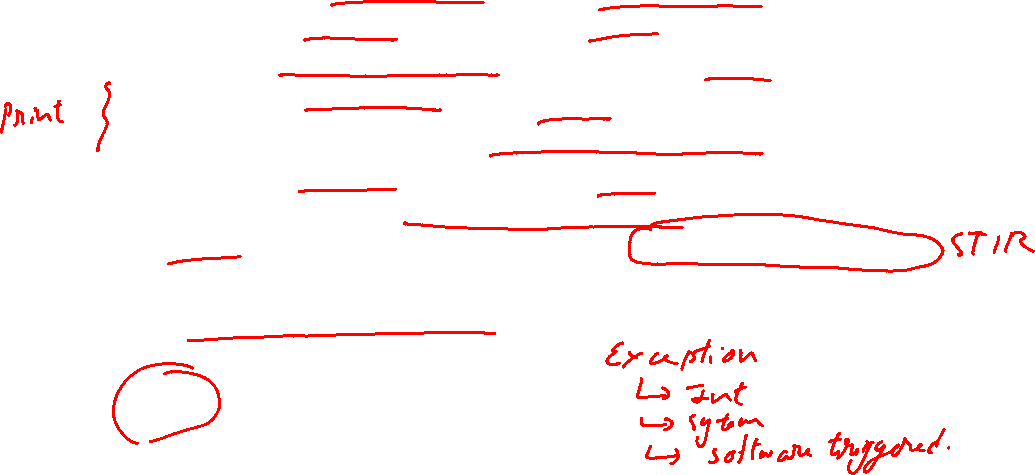 Print
STIR
Exception
↳ Int
↳ System
↳ Software triggered.